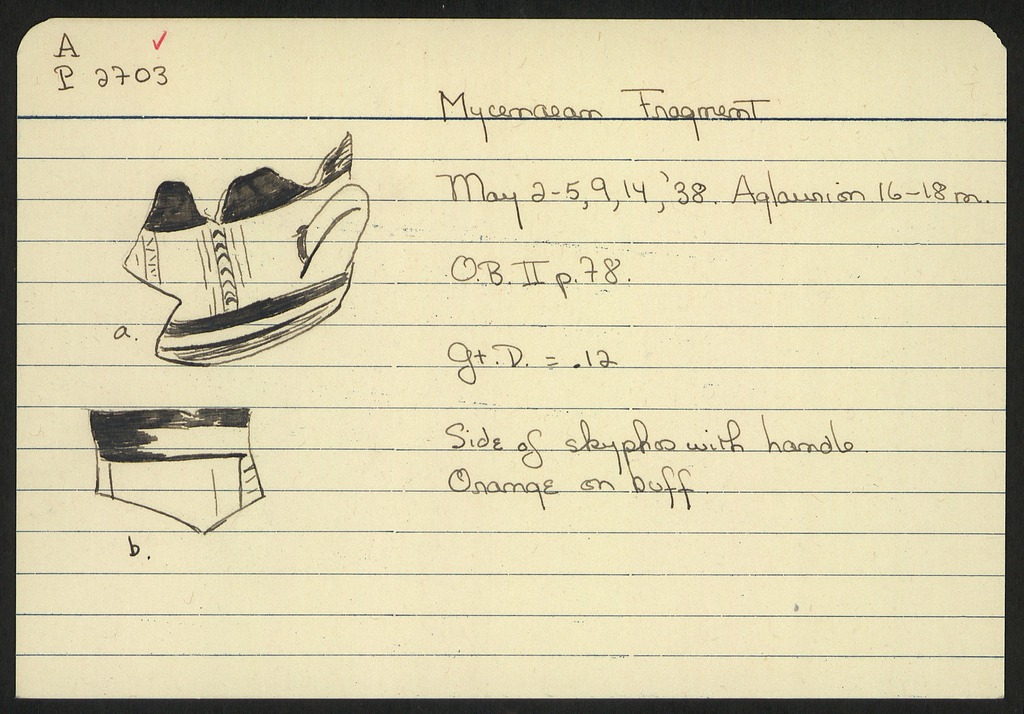 A ✓
P 2703
Mycenaean Fragment
May 2-5, 9, 14, '38. Aglaurion 16-18 m.
O.B. II p. 78.
gt. D. = .12
a.
Side of skyphos with handle
Orange on buff.
b.